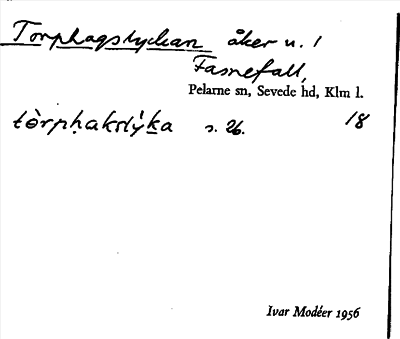 Torphagstyckan åker u. 1
Fasnefall,
Pelarne sn, Sevede hd, Klm l.
tòrpḥakstỳka s. 26. 18
Ivar Modéer 1956